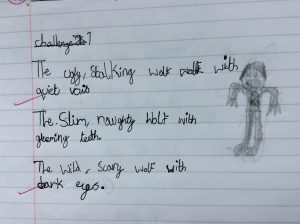 challenge 1
The ugly, Stalking wolf with
quiet vois
The Slim, noughty wolf with
gleeming teeth.
The wild, scary wolf with
dark eyes.